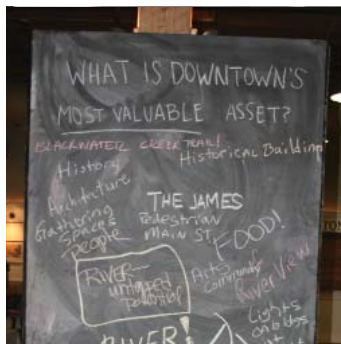 WHAT IS DOWNTOWN'S
MOST VALUABLE ASSET?
BLACKWATER CREEK TRAIL!
Historical Building
History
Architecture
Gathering
Spaces
People
THE JAMES
Pedestrian
MAIN ST.
FOOD!
RIVER-
untapped
potential
Arts
Community
River View
Lights
on bldgs
RIVER!